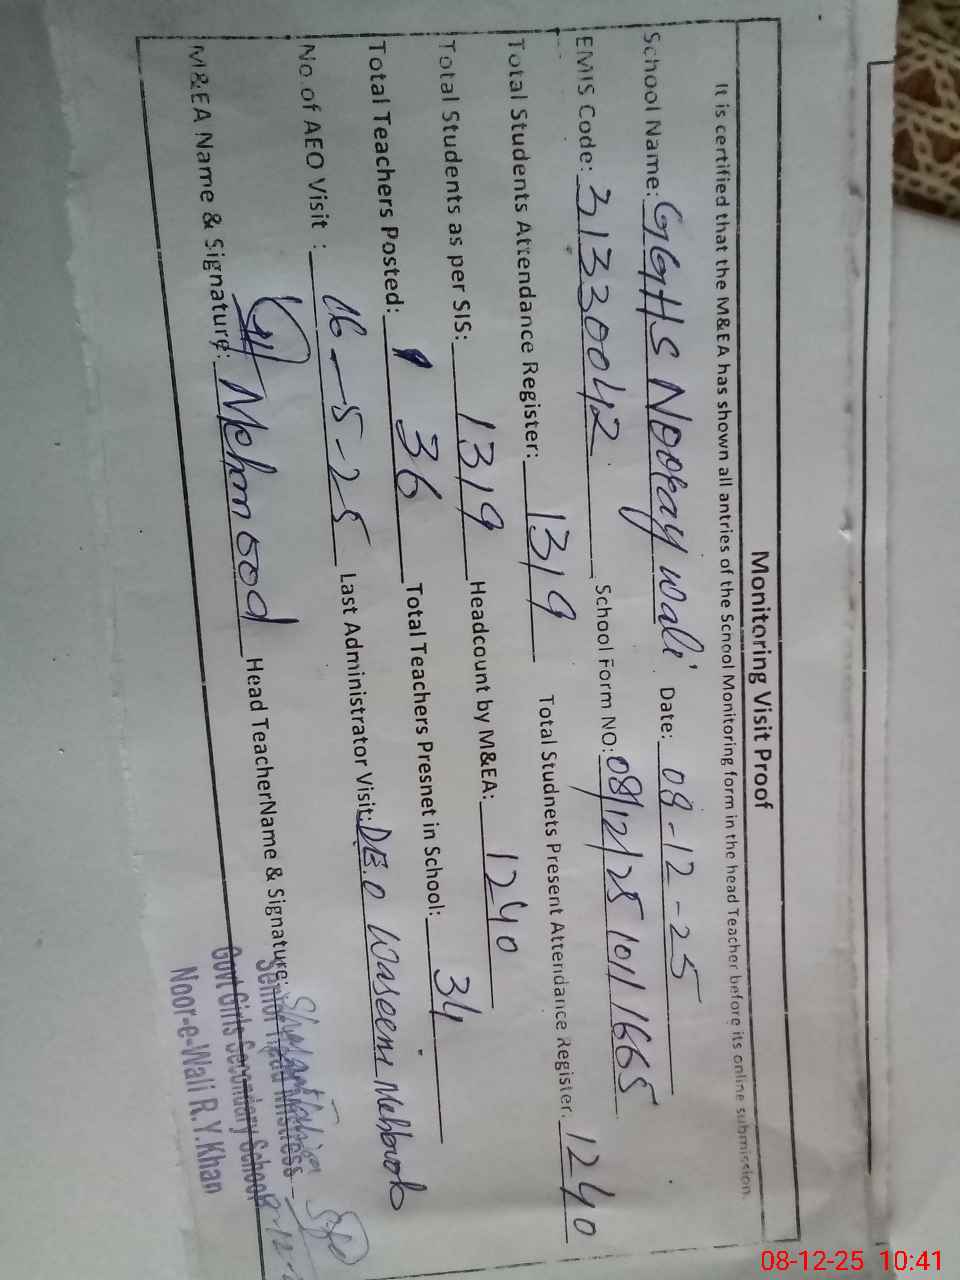 Monitoring Visit Proof
It is certified that the M&EA has shown all antries of the School Monitoring form in the head Teacher before its online submission.
School Name: GGHS Nooray wali Date: 08-12-25
EMIS Code: 31330042 School Form NO: 08/12/25 1011665
Total Students Attendance Register: 1319 Total Studnets Present Attendance Register. 1240
Total Students as per SIS: 1319 Headcount by M&EA: 1240
Total Teachers Posted: 36 Total Teachers Presnet in School: 34
No. of AEO Visit : 16-5-25 Last Administrator Visit: DE.O Waseem Mehboob
M&EA Name & Signature: Mehmood Head TeacherName & Signature:
Senior Head Mistress
Govt Girls Secondary School
Noor-e-Wali R.Y.Khan
08-12-25 10:41